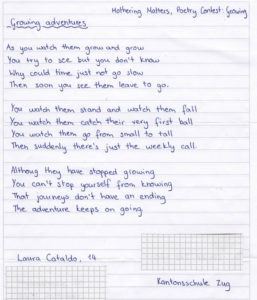 Mothering Matters, Poetry Contest: Growing
Growing adventures
As you watch them grow and grow
You try to see but you don't know
Why could time just not go slow
Then soon you see them leave to go.
You watch them stand and watch them fall
You watch them catch their very first ball
You watch them go from small to tall
Then suddenly there's just the weekly call.
Althoug they have stopped growing
You can't stop yourself from knowing
That journeys don't have an ending
The adventure keeps on going
Laura Cataldo, 14
Kantonsschule Zug